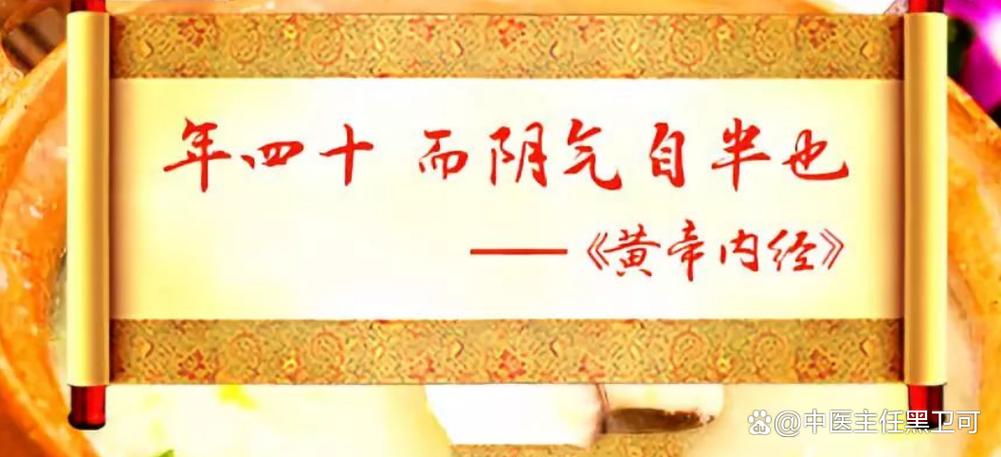 年四十 而阴气自半也
——《黄帝内经》
du @中医主任黑卫可